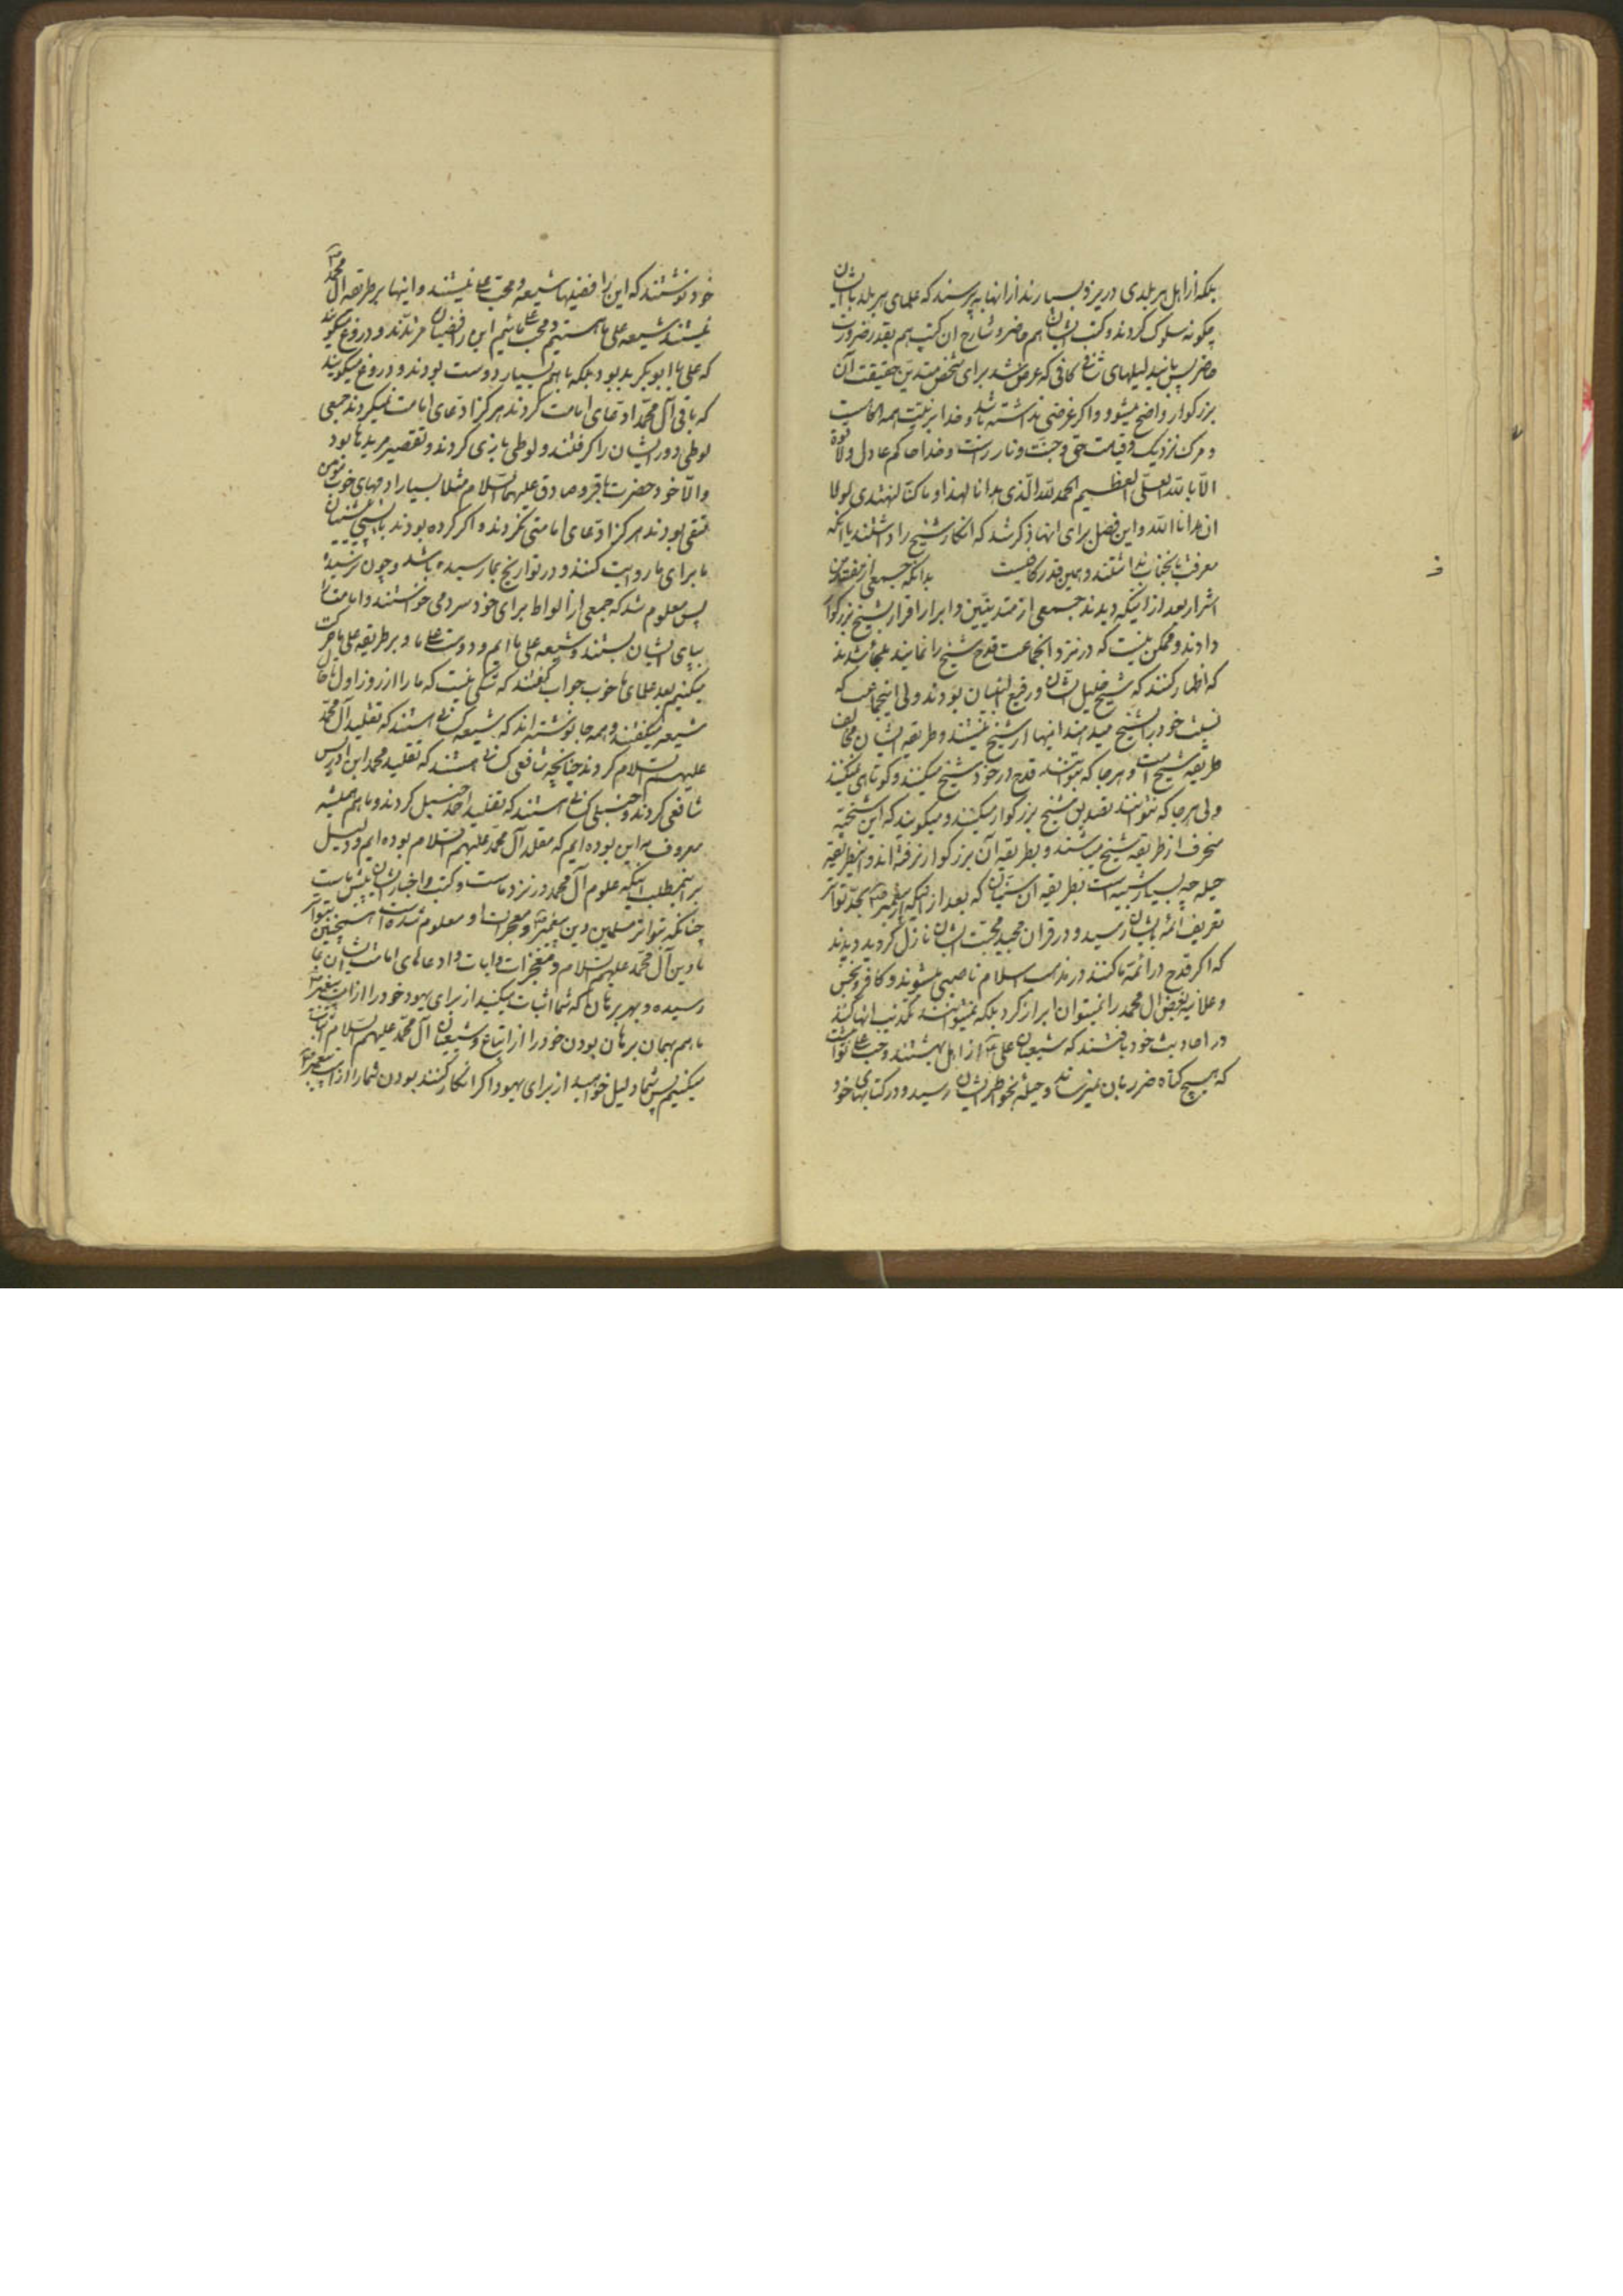 بلکه از اهل هر بلدی در یزد بسیارند از آنها بپرسند که علمای هر بلد با ایشان
چگونه سلوک کردند و کتب ایشان هم حاضر و شارح ان کتب هم بقدر ضرورت
حاضر پس باید دلیلهای کافی که عرض شد برای شخص متدین حقیقت آن
بزرکوار واضح میشود و اکر غرضی نداشته باشد و خدا بر نیت همه آکاهست
و مرک نزدیک و قیامت حق و جنت و نار راست و خدا حاکم عادل ولا قوة
الا بالله العلی العظیم الحمد لله الذی هدانا لهذا و ما کنا لنهتدی لولا
ان هدانا الله و این فصل برای انها ذکر شد که انکار شیخ را داشتند یا انکه
معرفت بانجناب نداشتند و همین قدر کافیست بدانکه جمعی از مفسدین
اشرار بعد از اینکه دیدند جمعی از متدینین و ابرار اقرار بشیخ بزرکوار
دادند و ممکن نیست که در نزد انجماعت قدح شیخ را نمایند ملجأ شدند
که اظهار کنند که شیخ جلیل الشان و رفیع البنیان بودند ولی اینجماعت که
نسبت خود بشیخ میدهند اینها از شیخ نیستند و طریقه ایشان مخالف
طریقه شیخ است و هر جا که بتوانند قدح در خود شیخ میکنند و کوتاهی نمیکنند
ولی هر جا که نتوانند تصدیق شیخ بزرکوار میکنند و میکویند که این شیخیه
منحرف از طریقه شیخ میباشند و بطریقه آن بزرکوار نرفته‌اند و اینطریقه
حیله چه بسیار شبیه است بطریقه ان سنیان که بعد از اینکه از پیغمبر ص بحد تواتر
تعریف ائمه بایشان رسید و در قران مجید محبت ایشان نازل کردید دیدند
که اکر قدح در ائمه ما کنند در مذهب اسلام ناصبی میشوند و کافر و نجس
و علانیه بغض ال محمد را نمیتوان ابراز کرد بلکه نمیتوانند تکذیب انها کنند
در احادیث خود یافتند که شیعیان علی از اهل بهشتند و حب علی ثوابیست
که هیچ کناه ضرر بان نمیرساند و حیله بخواطر ایشان رسید و در کتابهای خود
خود نوشتند که این رافضیها شیعه و محب علی نیستند و اینها بر طریقه ال محمد
نیستند شیعه علی ما هستیم و محب علی مائیم این رافضیان مرتدند و دروغ میکویند
که علی با ابو بکر بد بود بلکه با هم بسیار دوست بودند و دروغ میکویند
که باقی آل محمد ادعای امامت کردند هرکز ادعای امامت نمیکردند جمعی
لوطی دور ایشان را کرفتند و لوطی بازی کردند و تقصیر مریدها بود
والا خود حضرت باقر و صادق علیهما السلام مثلا بسیار ادمهای خوب مؤمن
متقی بودند هرکز ادعای امامتی نکردند و اکر کرده بودند بایستی سنیان
ما برای ما روایت کنند و در تواریخ بما رسیده باشد و چون نرسیده
پس معلوم شد که جمعی از الواط برای خود سردمی خواستند و امامت را
بپای ایشان بستند و شیعه علی ما ایم و دوست علی ما و بر طریقه علی ما حرکت
میکنیم بعد علمای ما خوب جواب کفتند که شکی نیست که ما را از روز اول تا حال
شیعه میکفتند و همه جا نوشته‌اند که شیعه کسانی هستند که تقلید آل محمد
علیهم السلام کردند چنانچه شافعی کسانی هستند که تقلید محمد ابن ادریس
شافعی کردند و حنبلی کسانی هستند که تقلید احمد حنبل کردند و ما هم همیشه
معروف باین بوده‌ایم که مقلد آل محمد علیهم السلام بوده‌ایم و دلیل
بر اینمطلب اینکه علوم آل محمد در نزد ماست و کتب و اخبار ایشان پیش ماست
چنانکه بتواتر مسلمین دین پیغمبر ص و معجزات او معلوم شده است همچنین بتواتر
ما دین آل محمد علیهم السلام و معجزات و ایات و ادعاهای امامت ایشان بما
رسیده و بهر برهان که شما اثبات میکنید از برای یهود خود را از امت پیغمبر ص
ما هم بهمان برهان بودن خود را از اتباع و شیعیان آل محمد علیهم السلام اثبات
میکنیم پس شما دلیل خواهید از برای یهود اکر انکار کنند بودن شما را از امت پیغمبر ص